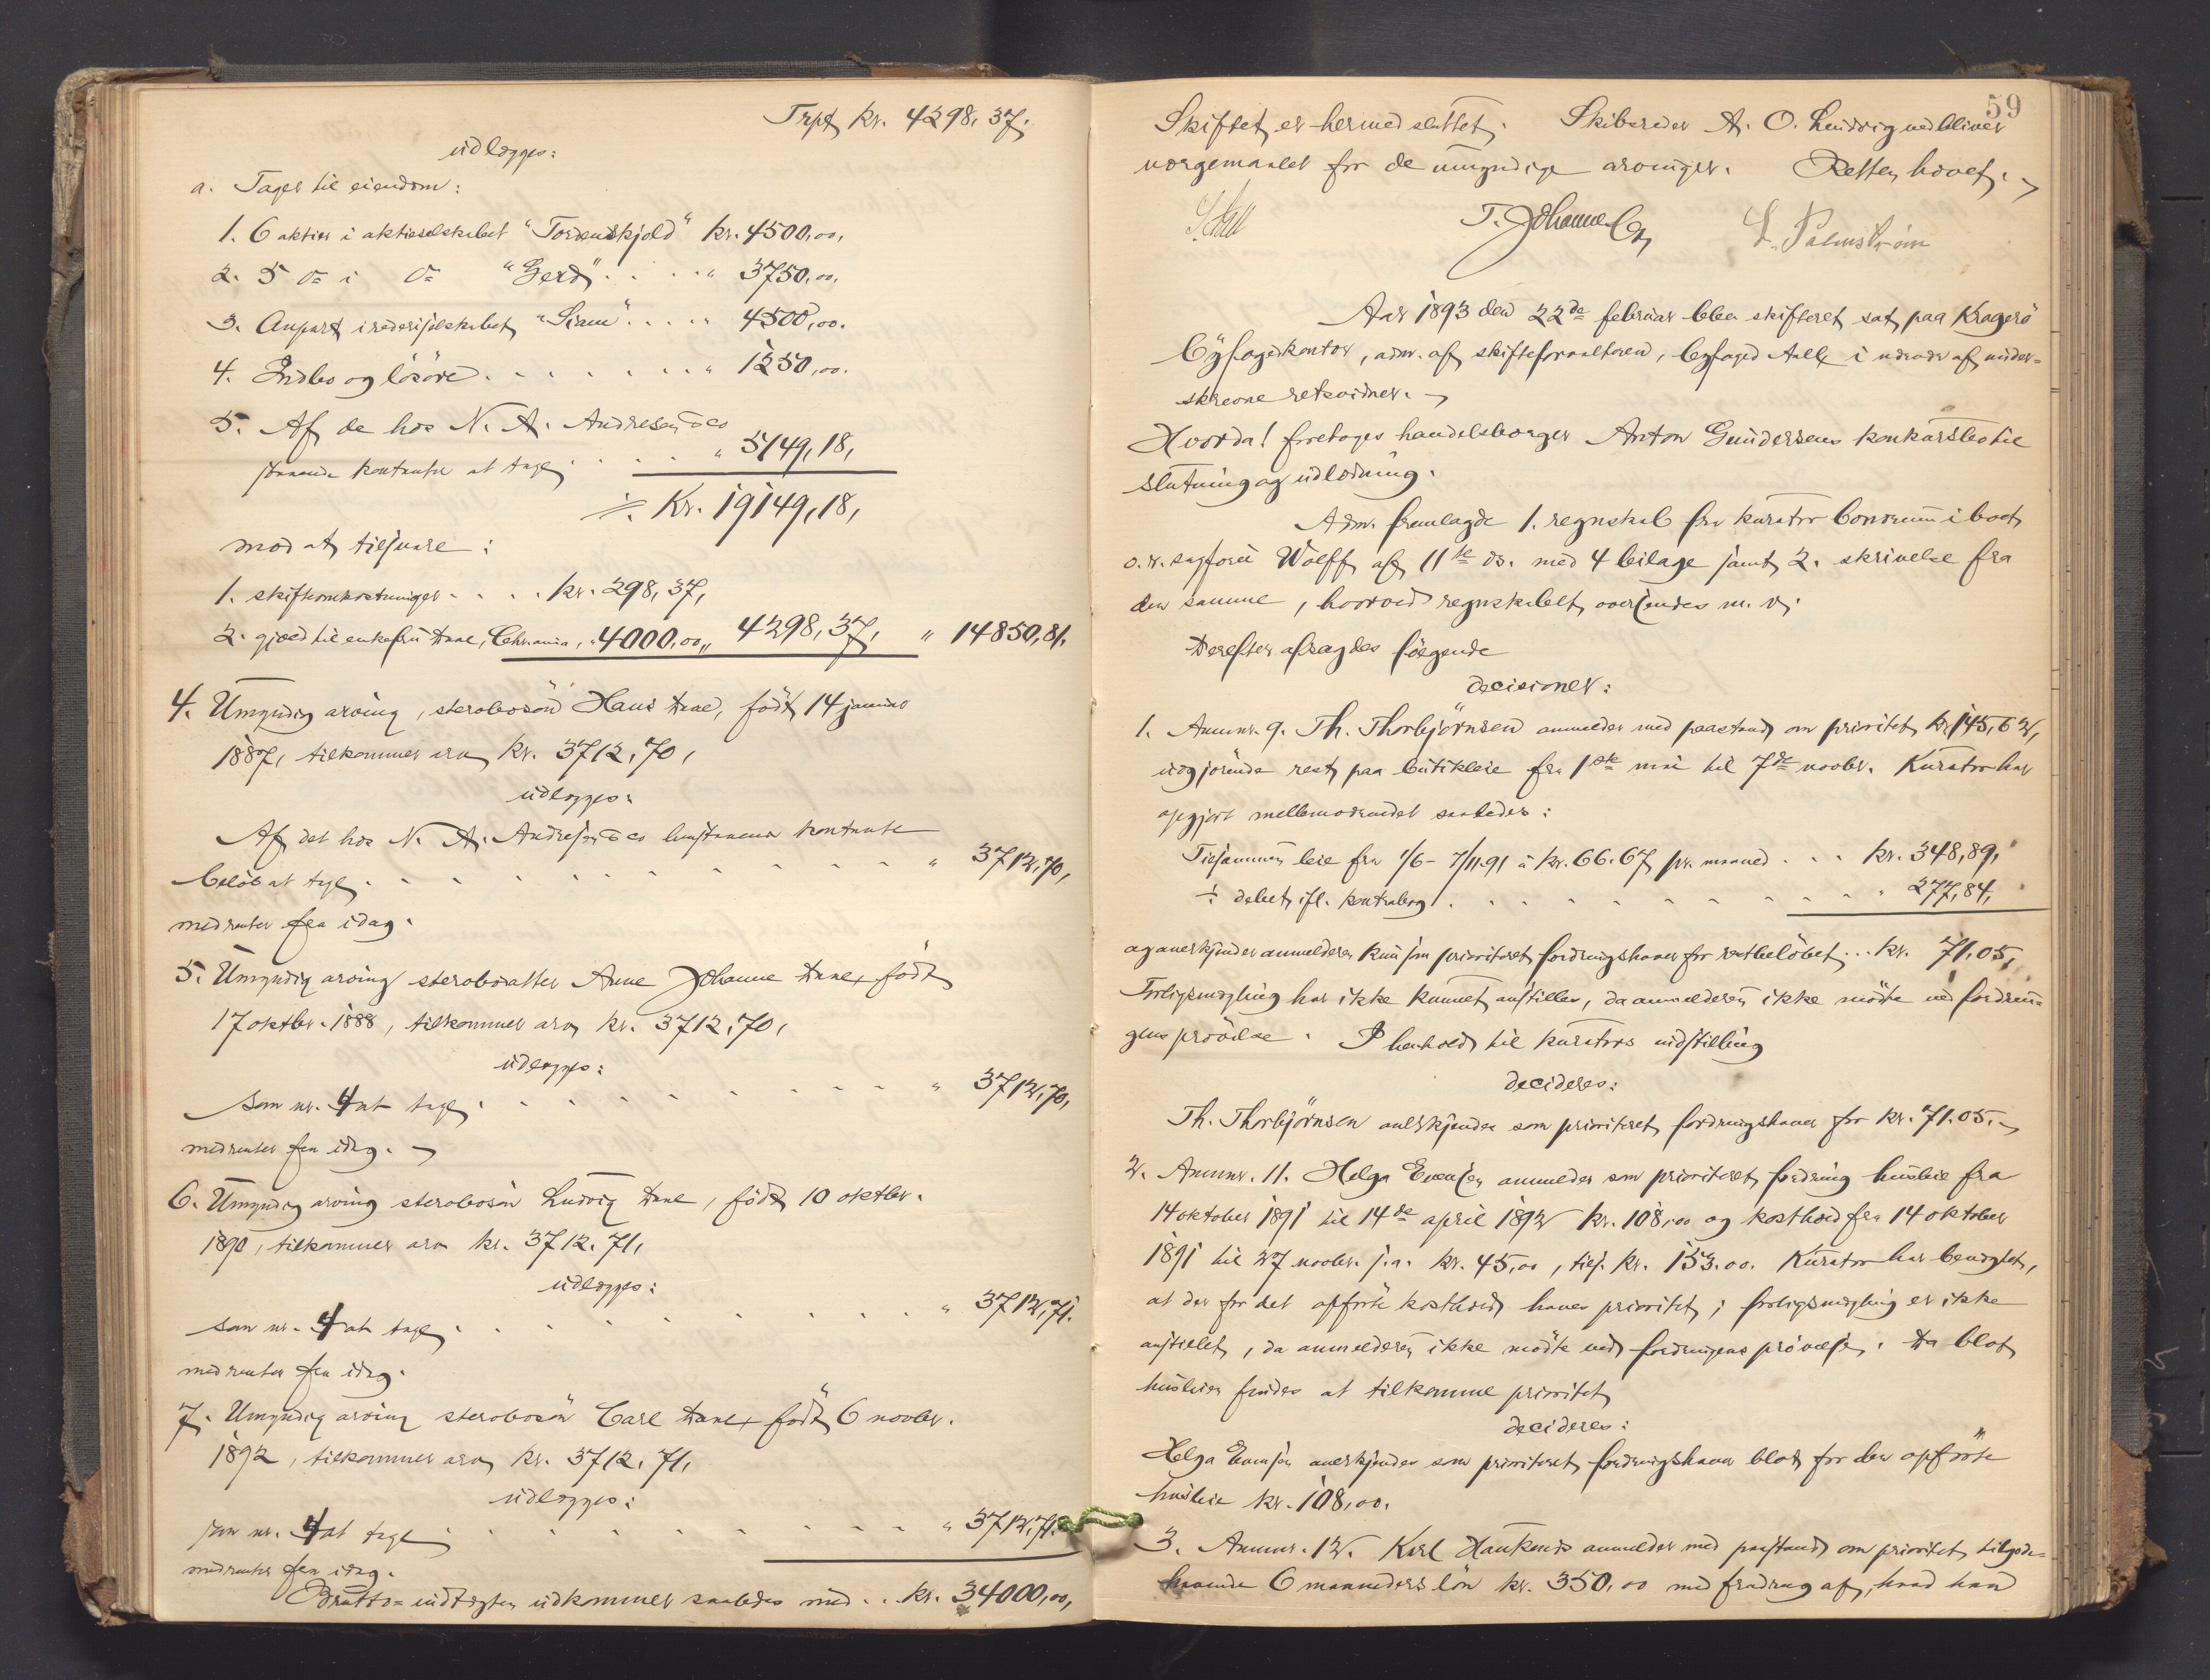 Trpt kr. 4298,37,
udlægges:
a. Tager til eiendom:
1. 6 aktier i aktieselskabet "Tordenskjold" kr. 4500,00,
2. 5 do i do "Gerd" . . . . " 3750,00,
3. Anpart i rederiselskabet "Siam" . . . . " 4500,00.
4. Indbo og løsøre . . . . . . . " 1250,00.
5. Af de hos N. A. Andresen & Co
kontanter at tage . . . . " 5149,18,
÷ Kr. 19149,18,
mod at tilsvare:
1. skifteomkostninger . . . . kr. 298,37,
2. gjæld til enkefru Aall, Chr.ania, " 4000,00, 4298,37, " 14850,81.
4. Umyndig arving, stervbosøn Hans, født 14 januar
1887, tilkommer arv kr. 3712,70,
udlægges:
Af det hos N. A. Andresen & Co kontante
beløb at tage . . . . . . . . . " 3712,70,
med renter fra idag.
5. Umyndig arving stervbodatter Anne Johanne født
17 oktbr. 1888, tilkommer arv kr. 3712,70,
udlægges:
Som nr. 4 at tage . . . . . . . . " 3712,70,
med renter fra idag.
6. Umyndig arving stervbosøn Ludvig, født 10 oktbr.
1890, tilkommer arv kr. 3712.71,
udlægges:
Som nr. 4 at tage . . . . . . . . " 3712,71.
med renter fra idag.
7. Umyndig arving stervbosøn Carl født 6 novbr.
1892, tilkommer arv kr. 3712,71,
udlægges:
som nr. 4 at tage . . . . . . . . " 3712,71.
med renter fra idag.
Brutto-indtægten udkommer saaledes med . . kr. 34000,00,
59
Skiftet er hermed sluttet. Skibsreder A. O. Lindvig vedbliver
værgemaalet for de umyndige arvinger. Retten hævet.
T. Johannesen L. Palmstrøm
Aar 1893 den 22de februar blev skifteret sat paa Kragerø
Byfogedkontor, adm. af skifteforvalteren, byfoged Aall i nærvær af under-
skrevne retsvidner.
Hvorda! foretoges handelsborger Anton Gundersens konkursbo til
slutning og udlodning.
Adm. fremlagde 1. regnskab fra kurator bonorum i boet
o.r. sagfører Wolff af 11te ds. med 4 bilage samt 2. skrivelse fra
den samme, hvorved regnskabet oversendes m. v.
Derefter afsagdes følgende
decisioner:
1. Anmnr. 9. Th. Thorbjørnsen anmelder med paastand om prioritet kr. 145,62,
udgjørende rest paa butikleie fra 1ste mai til 7de novbr. Kurator har
opgjort mellemværendet saaledes:
Tilsammen leie fra 1/6 - 7/11.91 à kr. 66.67 pr. maaned . . . kr. 348,89,
÷ debet ifl. kontrabog . . . . . . . . . . . . " 277,84,
og anerkjender anmelderen kun som prioriteret fordringshaver for restbeløbet . . . kr. 71,05,
Forligsmægling har ikke kunnet anstilles, da anmelderen ikke mødte ved fordrin-
gens prøvelse. I henhold til kurators indstilling
decideres:
Th. Thorbjørnsen anerkjendes som prioriteret fordringshaver for kr. 71.05.
2. Anmnr. 11. Helga Evensen anmelder som prioriteret fordring husleie fra
14 oktober 1891 til 14de april 1892 kr. 108,00 og kosthold fra 14 oktober
1891 til 27 novbr. s.a. kr. 45,00, tils. kr. 153.00. Kurator har benægtet,
at der for det opførte kosthold haves prioritet; forligsmægling er ikke
anstillet, da anmelderen ikke mødte ved fordringens prøvelse. Da blot
husleien findes at tilkomme prioritet
decideres:
Helga Evensen anerkjendes som prioriteret fordringshaver blot for den opførte
husleie kr. 108,00.
3. Anmnr. 12. Karl Haukenes anmelder med paastand om prioritet tilgode-
havende 6 maaneders løn kr. 350,00 med fradrag af, hvad han